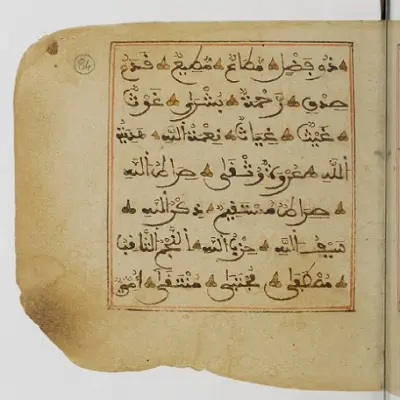 84
ذُو فَضْلٍ مُطَاعٌ مُطِيعٌ قَدَمُ
صِدْقٍ رَحْمَةٌ بُشْرَى غَوْثٌ
غَيْثٌ غِيَاثٌ نِعْمَةُ اللَّهِ هَدِيَّةُ
اللَّهِ عُرْوَةٌ وُثْقَى صِرَاطُ اللَّهِ
صِرَاطٌ مُسْتَقِيمٌ ذِكْرُ اللَّهِ
سَيْفُ اللَّهِ حِزْبُ اللَّهِ النَّجْمُ الثَّاقِبُ
مُصْطَفَى مُجْتَبَى مُنْتَقَى أُمِّيٌّ